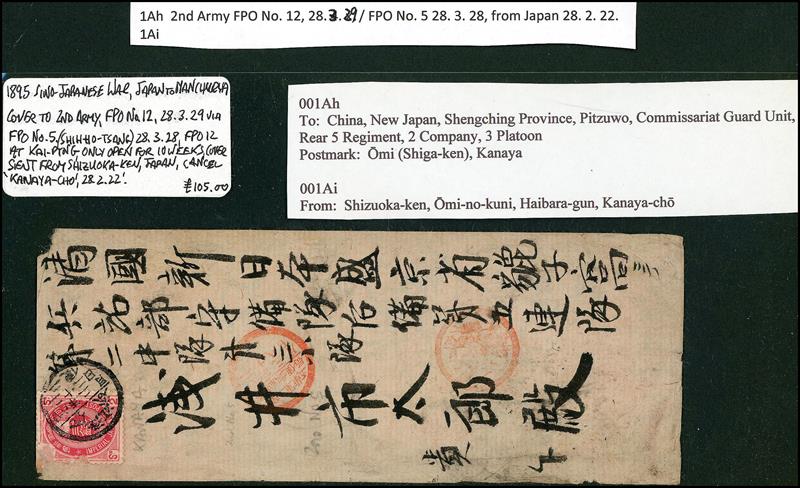 1Ah 2nd Army FPO No. 12, 28.3.29,/ FPO No. 5 28. 3. 28, from Japan 28. 2. 22.
1Ai
1895 SINO-JAPANESE WAR, JAPAN TO MANCHURIA
COVER TO 2ND ARMY, FPO No.12, 28.3.29 VIA
FPO No.5 (SHIH-HO-TSANG) 28.3.28, FPO 12
AT KAI-PING ONLY OPEN FOR 10 WEEKS, COVER
SENT FROM SHIZUOKA-KEN, JAPAN, CANCEL
'KANAYA-CHO', 28.2.22'.
£105.00
001Ah
To: China, New Japan, Shengching Province, Pitzuwo, Commissariat Guard Unit,
Rear 5 Regiment, 2 Company, 3 Platoon
Postmark: Ōmi (Shiga-ken), Kanaya
001Ai
From: Shizuoka-ken, Ōmi-no-kuni, Haibara-gun, Kanaya-chō
清國新日本盛京省貔子窩
兵站部守備隊后備第五連隊
第二中隊
浅井市太郎殿
KANAYA
IMPERIAL